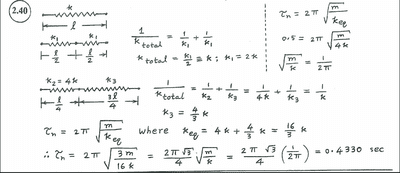 2.40
k
l
k₁ k₁
l/2 l/2
1/k_total = 1/k₁ + 1/k₁
k_total = k₁/2 ≡ k ; k₁ = 2k
τₙ = 2π √(m/k_eq)
0.5 = 2π √(m/4k)
√(m/k) = 1/2π
k₂ = 4k k₃
l/4 3l/4
1/k_total = 1/k₂ + 1/k₃ = 1/4k + 1/k₃ = 1/k
k₃ = 4/3 k
τₙ = 2π √(m/k_eq) where k_eq = 4k + 4/3 k = 16/3 k
∴ τₙ = 2π √(3m/16k) = 2π√3/4 √(m/k) = 2π√3/4 (1/2π) = 0.4330 sec